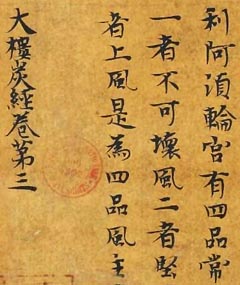 利阿湏輪宫有四品常
一者不可壞風二者堅
者上風是為四品風主
大樓炭經卷第三